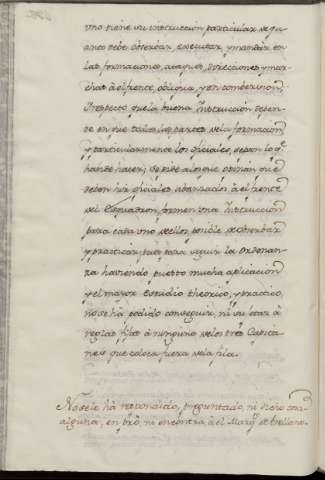 uno tiene su instrucción particular de qu
anto debe observar, executar, y mandar en
las formaciones, ataques, direcciones, y mar-
chas à el frente, obliqua, y en combersion;
Respecto que la buena Instrucción depen-
de en que todas las partes de la formacion
y particularmente los oficiales, sepan lo q.e
han de hacer; Se pide à los que opinan que
deben hir oficiales abanzados à el frente
del Esquadron, formen una Instrucción
para cada uno de ellos, posible de observar
y practicar, pues para seguir la Ordenan-
za haviendo puesto mucha aplicacion
y el mayor Estudio theorico, y practico,
no se ha podido conseguir, ni su estar à
reglas fixas à ninguno de los tres Capita-
nes que coloca fuera de la fila.
No se le hà respondido, preguntado, ni dicho cosa
alguna, en prò, ni encontra, à el Marq.s de